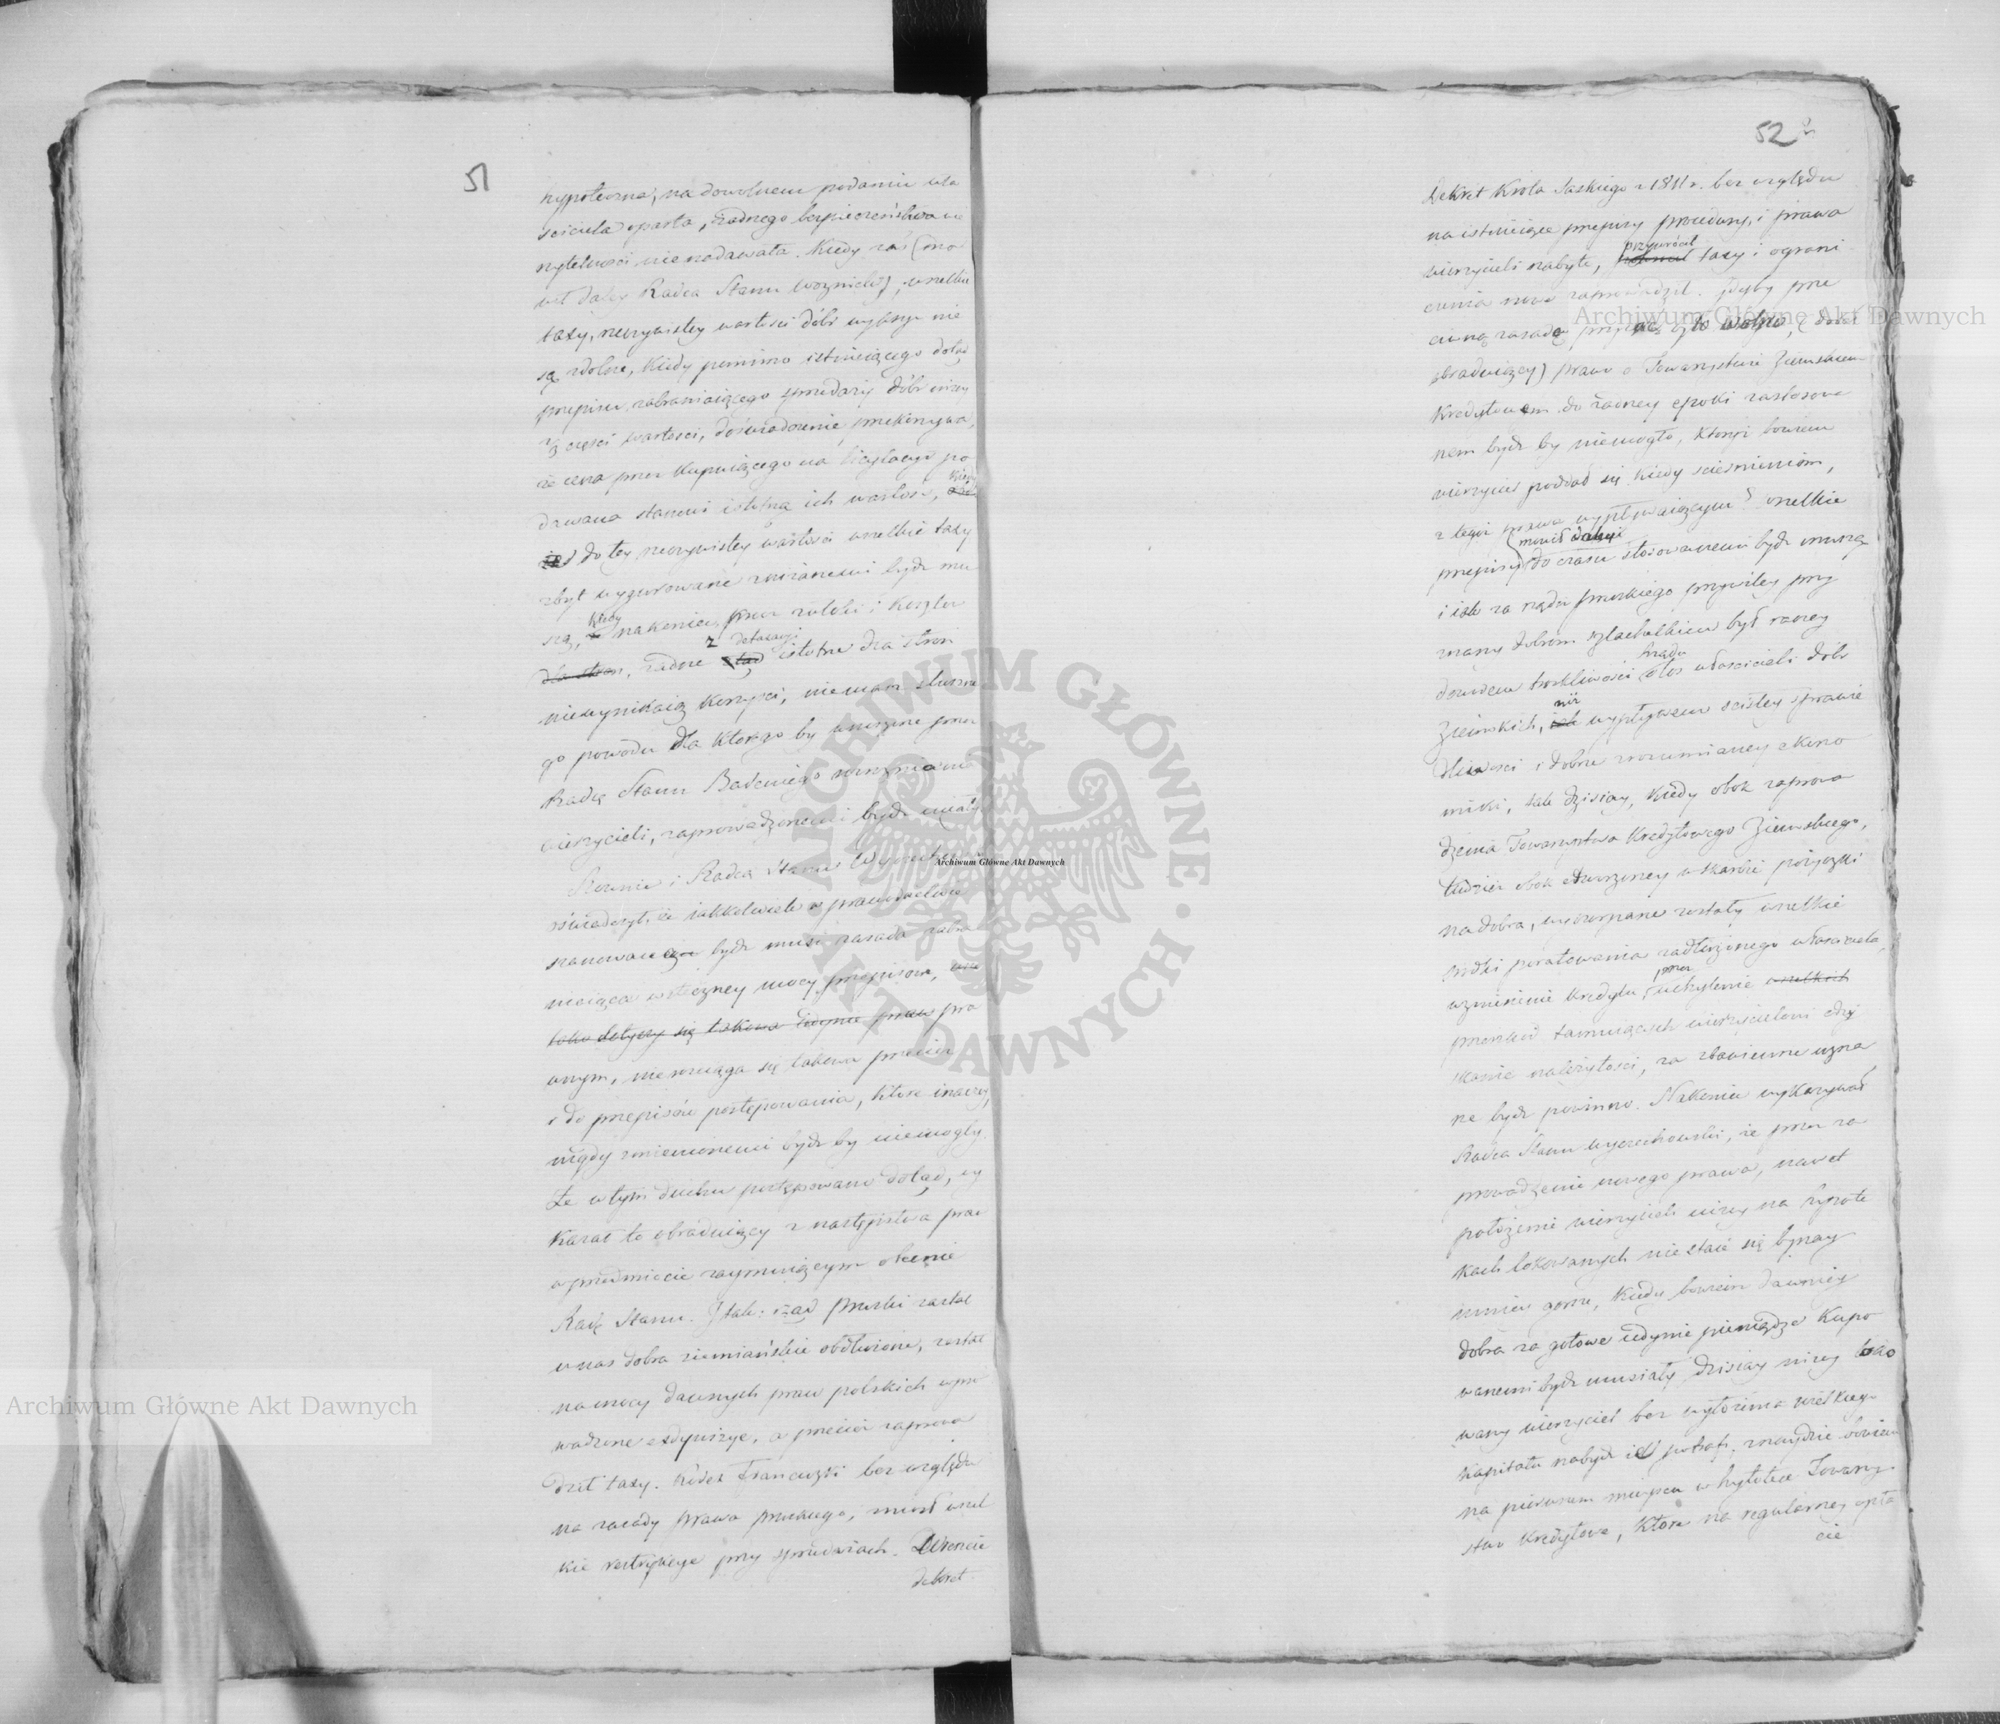 51
hypoteczna, na dowolnem podaniu wła
sciciela oparta, żadnego bezpieczeństwa w
rzytelności nie nadawała. Kiedy zaś (mo
wił daley Radca Stanu Woznicki), wszelkie
taxy, rzeczywistey wartości dóbr wykazać nie
są zdolne, kiedy pomimo istnieiącego dotąd
przepisu, zabraniaiącego sprzedaży dóbr niżey
2/3 części wartości, doświadczenie przekonywa,
że cena przez kupuiącego na licytacyi po
dawana stanowi istotną ich wartość, kiedy
do tey rzeczywistey wartości wszelkie taxy
zbyt wygórowane zniżanemi bydź mu
szą, kiedy nakoniec, przez zwłoki i koszta
dla stron, żadne z detaxacyi istotne dla stron
niewynikaią korzyści, niemasz słuszne
go powodu dla którego by wnoszone przez
Radcę Stanu Badeniego wezwanie
wierzycieli, zaprowadzonemi bydź miały
Rownie i Radca Stanu Wyczechowski
oświadczył, że iakkolwiek w prawodawstwie
szanowaną bydź musi zasada zabra
niaiąca wsteczney mocy przepisom,
tako dotyczy się takowa iedynie praw pra
wnym, nierozciąga się takowa przecież
i do przepisów postępowania, które inaczey
nigdy zmienionemi bydź by niemogły.
Że w tym duchu postępowano dotąd, wy
kazał to obraduiący z następstwa praw
w przedmiocie zaymuiącym obecnie
Radę Stanu. I tak: rząd Pruski zastał
u nas dobra ziemiańskie obdłużone, zastał
na mocy dawnych praw polskich wpro
wadzone exdywizye, a przecież zaprowa
dził taxy. Kodex Francuzki bez względu
na zasady prawa pruskiego, zniósł wszel
kie restrykcye przy sprzedażach. Wreszcie
dekret
52
Dekret Króla Saskiego z 1811 r. bez względu
na istnieiące przepisy procedury, i prawa
wierzycieli nabyte, przywrócił taxy i ograni
czenia nowe zaprowadził. Gdyby prze
ciwną zasadę przyiąć było wolno, (dodał
obraduiący) prawo o Towarzystwie Ziemskiem
Kredytowem do żadney epoki zastosowa
nem bydź by niemogło, któryż bowiem
wierzyciel poddał się kiedy ścieśnieniom,
z tegoż prawa wypływaiącym? Wszelkie
przepisy (mówił daley) do czasu stosowanemi bydź muszą
i iak za rządu pruskiego przywiley przy
znany dobrom szlacheckim był raczey
dowodem troskliwości rządu o los właścicieli dóbr
Ziemskich, niż wypływem ścisłey sprawie
dliwości i dobrze zrozumianey ekono
miki, tak dzisiay, kiedy obok zaprowa
dzenia Towarzystwa Kredytowego Ziemskiego,
tudzież obok otworzoney w skarbie pożyczki
na dobra, wyczerpane zostały wszelkie
środki poratowania zadłużonego właściciela,
wzmożenie kredytu, przez uchylenie wszelkich
przeszkód tamuiących wierzycielowi odzy
skanie należytości, za zbawienne uzna
ne bydź powinno. Nakoniec wykazywał
Radca Stanu Wyczechowski, że przez za
prowadzenie nowego prawa, nawet
położenie wierzycieli niżey na hypote
kach lokowanych nie staie się bynay
mniey gorsze, kiedy bowiem dawniey
dobra za gotowe iedynie pieniądze kupo
wanemi bydź musiały dzisiay niżey loko
wany wierzyciel bez wyłożenia wielkiego
kapitału nabydź ie potrafi, znaydzie bowiem
na pierwszem mieyscu w hypotece Towarzy
stwo Kredytowe, które na regularney opła
cie
Archiwum Główne Akt Dawnych
Archiwum Główne Akt Dawnych
Archiwum Główne Akt Dawnych
ARCHIWUM GŁÓWNE · AKT DAWNYCH ·